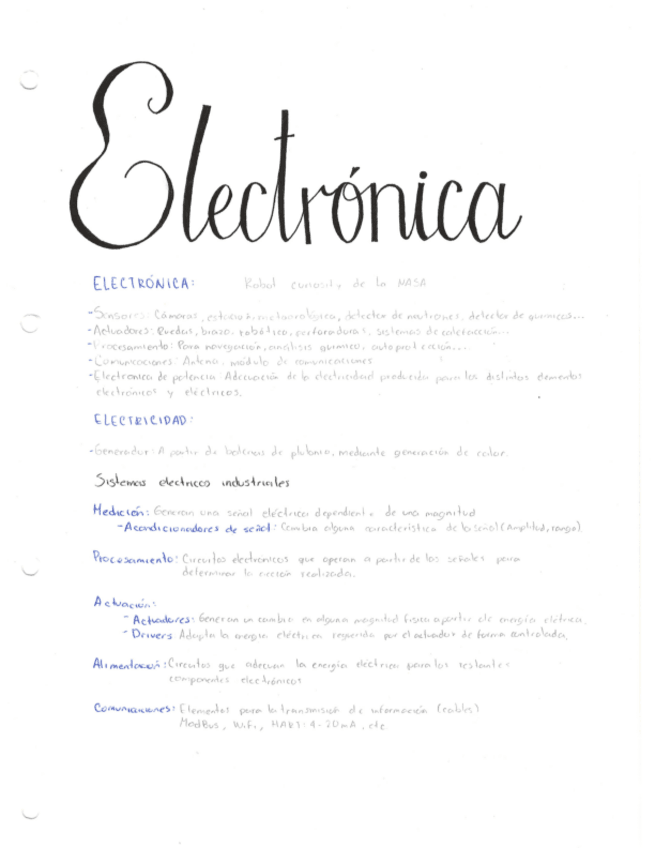 Electrónica
ELECTRÓNICA: Robot curiosity de la NASA
-Sensores: Cámaras, estación meteorológica, detector de neutrones, detector de químicos...
-Actuadores: Ruedas, brazo robótico, perforadoras, sistemas de calefacción...
-Procesamiento: Para navegación, análisis químico, autoprotección....
-Comunicaciones: Antena, módulo de comunicaciones
-Electronica de potencia: Adecuación de la electricidad producida para los distintos elementos
electrónicos y eléctricos.
ELECTRICIDAD:
-Generador: A partir de baterias de plutonio, mediante generación de calor.
Sistemas electricos industriales
Medición: Generan una señal eléctrica dependiente de una magnitud
-Acondicionadores de señal: Cambia alguna caracteristica de la señal (Amplitud, rango).
Procesamiento: Circuitos electronicos que operan a partir de las señales para
determinar la acción realizada.
Actuación:
- Actuadores: Generan un cambio en alguna magnitud fisica a partir de energia eléctrica.
- Drivers Adapta la energia eléctrica requerida por el actuador de forma controlada.
Alimentación: Circuitos que adecuan la energia eléctrica para los restantes
componentes electrónicos
Comunicaciones: Elementos para la transmisión de información (cables)
ModBus, WiFi, HART: 4-20mA, etc.